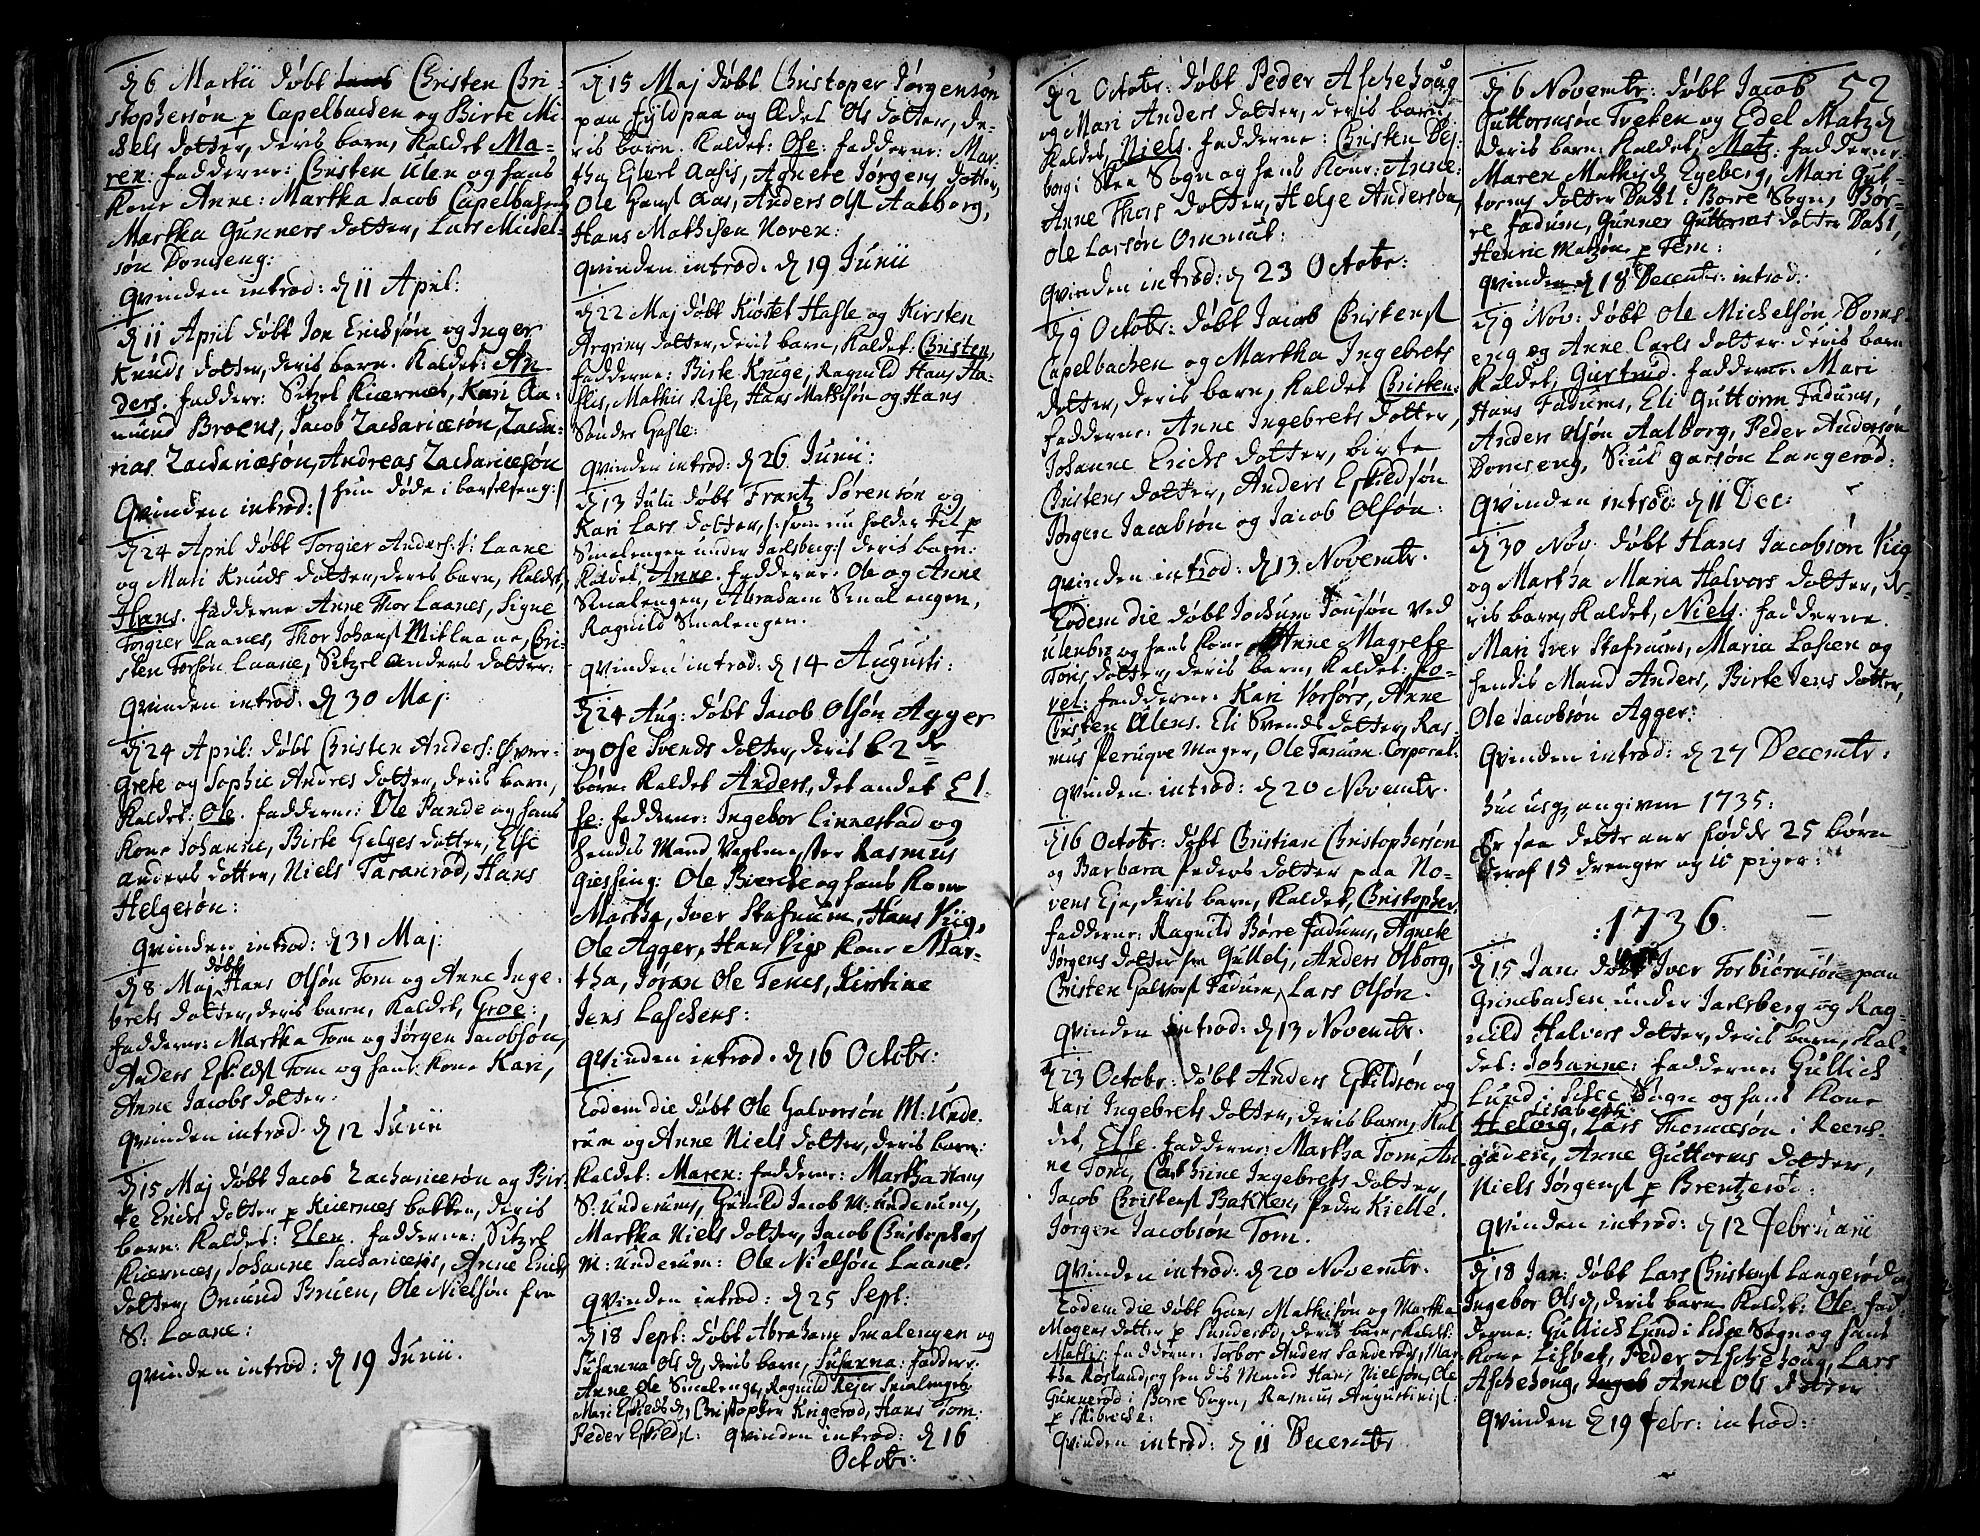 d 6 Martii döbt Christen Chri-
stophersön p Capelbachen og Birte Mi-
kels dotter, deris barn, kaldet Ma-
ren: fadderne: Christen Ulen og hans
Kone Anne: Martha Jacob Capelbachen
Martha Gunners dotter, Lars Mickel-
sön Domseng:
qvinden introd: d 11 April:
d 11 April döbt Jon Ericksön og Inger
Knuds dotter, deris barn. Kaldet: An
ders. fadderr: Sitzel Kiernes, Kari Aa-
mund Broens, Jacob Zachariæsön, Zacha-
rias Zachariæsön, Andreas Zachariæsön
Qvinden introd: / hun döde i barselseng:/
d 24 April döbt Torgier Anders: S: Laane
og Mari Knuds dotter, deris barn, kaldet,
Hans. fadderne Anne Thor Laanes, Signe
Torgier Laanes, Thor Johans Mitlaane, Chri-
sten Torsön Laane, Sitzel Anders dotter:
qvinden introd: d 30 Maj:
d 24 April: döbt Christen Anders: Över-
Grete og Sophie Andres dotter, deris barn,
Kaldet: Ole. fadderne: Ole Pande og hans
Kone Johanne, Birte Helges dotter, Else
anders dotter, Niels Taranröd, Hans
Helgesön:
qvinden introd: d 31 Maj:
d 8 Maj döbt Hans Olsön Tom og Anne Inge-
brets dotter, deris barn, kaldet, Groe:,
fadderne: Martha Tom og Jörgen Jacobsön,
Anders Eskilds Tom og hans Kone Kari,
Anne Jacobs dotter:
qvinden introd: d 12 Junii
d 15 Maj döbt Jacob Zachariæsön og Bir-
te Erichs dotter p Kiernes bakken, deris
barn: Kaldet: Elen. fadderne: Sitzel
Kiernes, Johanne Sachariæsis, Anne Erichs
dotter, Omund Bruen, Ole Nielsön fra
S: Laane:
qvinden introd: d 19 Junii.
d 15 Maj döbt Christoper Jörgensön
paa fyldpaa og Ædel Ols dotter, de-
ris barn. Kaldet: Ole: fadderne: Mar-
tha Elert Aasis, Agnete Jörgens dotter,
Ole Hans Aas, Anders Ols Aalborg,
Hans Mathisen Noren:
qvinden introd. d 19 Junii
d 22 Maj döbt Kiöstel Hasle og Kirsten
Argrins dotter, deris barn, kaldet: Christen,
fadderne: Birte Kruge, Ragnild Hans Ha-
slis, Mathis Rise, Hans Mathisön og Hans
Söndre Hasle:
qvinden introd: d 26 Junii:
d 13 Julii döbt Frantz Sörensön og
Kari Lars dotter, /: som nu holder til p
Smalengen under Jarlsberg:/ deris barn:
kaldet, Anne. fadderne: Ole og Anne
Smalengen, Abraham Smalengen,
Ragnild Smalengen.
qvinden introd: d 14 Augusti:
d 24 Aug: döbt Jacob Olsön Agger
og Ose Svends dotter, deris 2de
börn kaldet Anders, det andet El-
se: fadderne: Ingebor Linnestad og
hendis Mand Vagtmester Rasmus
Giessing: Ole Bverke og hans Kone
Martha, Iver Stafnum, Hans Viig,
Ole Agger, Hans Vigs kone Mar-
tha, Jöran Ole Tems, Kirstine
Jens Laschens:
qvinden introd. d 16 Octobr:
Eodem die döbt Ole Halversön M: Unde-
rum og Anne Niels dotter, deris barn:
kaldet: Maren: fadderne: Martha Hans
S. Underums, Gunild Jacob M: Underums,
Martha Niels dotter, Jacob Christophers
M: Underum: Ole Nielsön Laane:
qvinden introd: d 25 Sept:
d 18 Sept: döbt Abraham Smalengen og
Susanna Ols d, deris barn, Susanna: fadderr:
Anne Ole Smalenge, Ragnild Rejer Smalengen
Mari Eskilds d, Christopher Krigeröd, Hans Tom:
Peder Eskilds: qvinden introd: d 16
Octobr:
d 2 Octobr: döbt Peder Aschehoug
og Mari Anders dotter, deris barn
kaldet, Niels. fadderne: Christen Vej-
borg i Skee Sogn og hans Kone: Anne:
Anne Thors dotter, Helge Andersön,
Ole Larsön Ommult:
qvinden introd: d 23 Octobr:
d 9 Octobr: döbt Jacob Christens
Capelbachen og Martha Ingebrets
dotter, deris barn, kaldet Christen:
fadderne: Anne Ingebrets dotter,
Johanne Erichs dotter, birte
Christens dotter, Anders Eskildsön
Jörgen Jacobsön og Jacob Olsön:
qvinden introd: d 13 Novembr.
Eodem die döbt Jochum Jonsön ved
Ulenbro og hans kone Anne Magrete
Tors dotter, deris barn, kaldet: Po-
vel: fadderne: Kari Vorförs, Anne
Christen Ulens. Eli Svends dotter, Ras-
mus Peruqve Mager, Ole Farum. Corporal:
qvinden introd: d 20 Novembr.
d 16 Octobr: döbt Christian Christophersön
og Barbara Peders dotter paa No-
vens Eje, deris barn, kaldet, Christopher,
fadderne: Ragnild Börre Fadums, Agnete
Jörgens dotter fra Gullelj, Anders Olborg,
Christen Halvors Fadum, Lars Olsön.
qvinden introd: d 13 Novembr.
d 23 Octobr: döbt Anders Eskildsön og
Kari Ingebrets dotter, deris barn, Kal
det, Else. fadderne: Martha Tom, An
ne Tom, Cathrine Ingebrets dotter,
Jacob Christens Bakken, Peder Kielle.
Jörgen Jacobsön Tom.
qvinden introd: d 20 Novembr.
Eodem die döbt Hans Mathisön og Martha
Mogens dotter p Sanderöd, deris barn, kaldet:
Mathis: fadderne: Torbor Anders Sanderöds, Mar-
tha Rosland, og hendis Mand Hans Nielsön, Ole
Gunneröd i Borre Sogn, Rasmus Augustinis
p Skibreche:
qvinden introd: d 11 Decembr
52
d 6 Novembr: döbt Jacob
Guttormsön Tveten og Edel Matz d
deris barn: kaldet, Matz: fadderne:
Maren Mathis d Egeberg, Mari Gut-
torms dotter Dahl i Borre Sogn, Bör-
re Fadum, Gunner Guttorms dotter Dahl,
Henric Matzön p Tem:
qvinden d 18 Decembr: introd:
d 9 Nov: döbt Ole Michelsön Doms-
eng og Anne Carls dotter deris barn
kaldet, Gurtrud. fadderne: Mari
Hans Fadums, Eli Guttorm Fadums,
Anders Olsön Aalborg, Peder Andersön
Domseng, Siul Larsön Langeröd:
qvinden introd: d 11 Dec:
d 30 Nov. döbt Hans Jacobsön Viig
og Martha Maria Halvors dotter, de-
ris barn, kaldet, Niels: fadderne.
Mari Iver Stafnums, Maria Lasken og
hendis Mand Anders, Birte Jens dotter,
Ole Jacobsön Agger:
qvinden introd: d 27 Decembr:
huc usq; angiver 1735:
Er saa dette aar födde 25 börn
deraf 15 drenger og 10 piger:
: 1736.
d 15 Jan: döbt Iver Torbiörnsön paa
Grinebachen under Jarlsberg og Rag-
nild Halvors dotter, deris barn, kal-
det: Johanne: fadderne: Gullich
Lund i Sdee Sogn og hans Kone
Lisabeth
Helvig, Lars Thomesön i Reens-
gaden, Anne Guttorms dotter,
Niels Jörgens p Brentzeröd:
qvinden introd: d 12 Februarii
d 18 Jan: döbt Lars Christens Langeröd og
Ingebor Ols d, deris barn kaldet: Ole: fad
derne: Gullich Lund i Sdee Sogn og hans
Kone Lisbet, Peder Aschehoug, Lars
Aschehoug, Anne Ols dotter
qvinden d 19 Febr: introd: